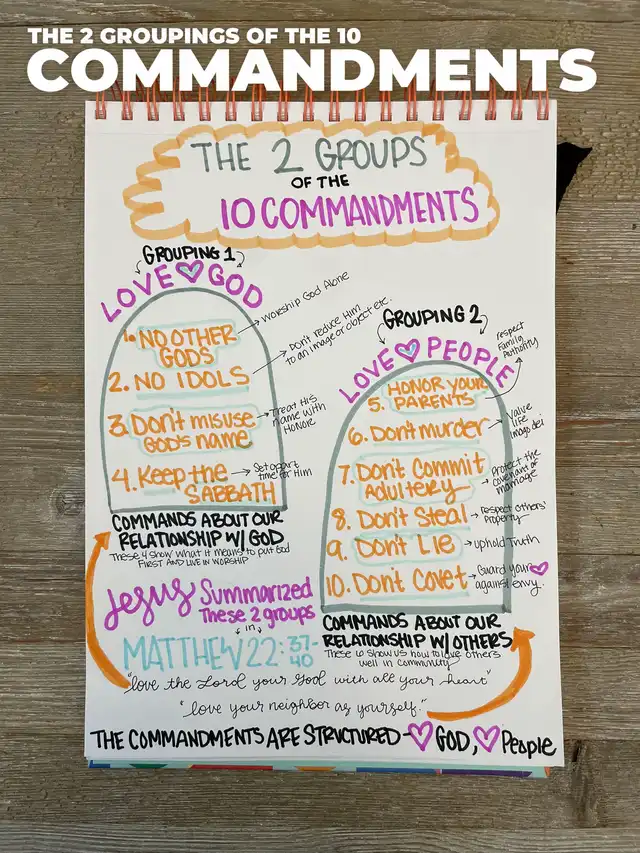 THE 2 GROUPINGS OF THE 10
COMMANDMENTS
THE 2 GROUPS
OF THE
10 COMMANDMENTS
GROUPING 1
LOVE GOD
1. NO OTHER
GODS
→ Worship God Alone
2. NO IDOLS
→ Don't reduce Him
to an image or object etc.
3. Don't misuse
GOD'S name
→ Treat His
name with
HONOR
4. Keep the
SABBATH
→ Set apart
time for Him
COMMANDS ABOUT OUR
RELATIONSHIP W/ GOD
These 4 show what it means to put God
FIRST AND LIVE IN WORSHIP
GROUPING 2
LOVE PEOPLE
5. HONOR YOUR
PARENTS
respect
Family
Authority
6. Don't murder
→ Value
life
imago dei
7. Don't Commit
Adultery
→ Protect the
covenant of
marriage
8. Don't Steal
→ Respect Others'
Property
9. Don't Lie
→ uphold Truth
10. Don't Covet
→ Guard your
against envy.
COMMANDS ABOUT OUR
RELATIONSHIP W/ OTHERS
These 6 show us how to love others
well in community
Jesus Summarized
These 2 groups
in
MATTHEW 22:37-
40
"love the Lord your God with all your heart"
"love your neighbor as yourself."
THE COMMANDMENTS ARE STRUCTURED - GOD, People